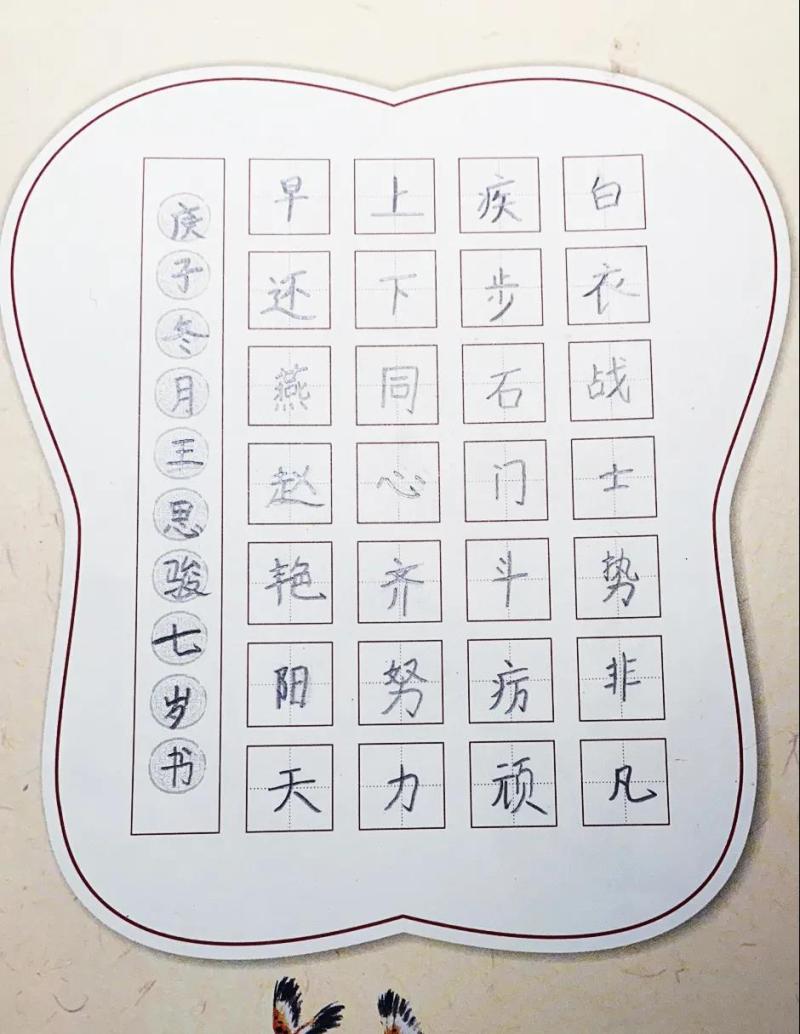 白衣战士势非凡
疾步石门斗疠顽
上下同心齐努力
早还燕赵艳阳天
庚子冬月王思骏七岁书